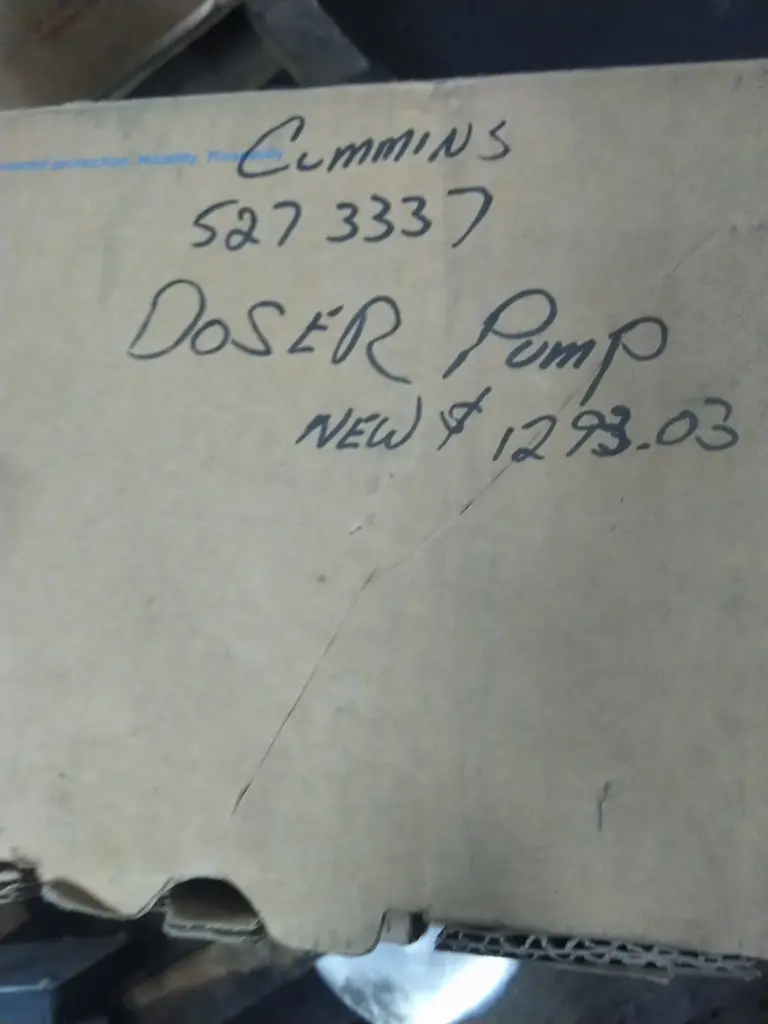 protection. Mobility. Prosperity
Cummins
527 3337
DOSER Pump
NEW $ 1293.03